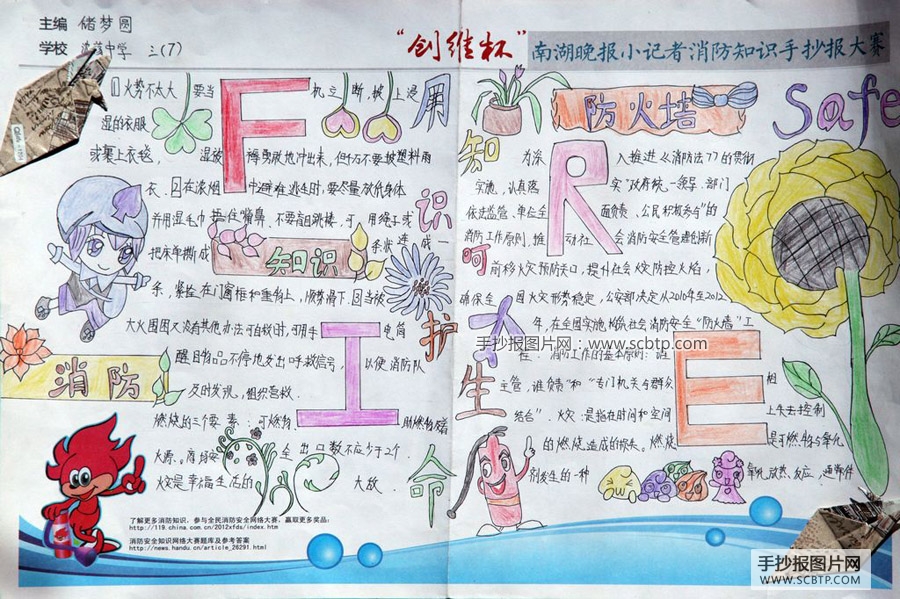 主编 储梦圆
学校 中学 三(7)
“创维杯”
南湖晚报小记者消防知识手抄报大赛
F
I
R
E
Safe
防火墙
知识
消防
用知识呵护生命
①火势不太大 要当机立断,披上浸
湿的衣服
或裹上衣毯, 湿被 褥勇敢地冲出来,但千万不要披塑料雨
衣.②在浓烟 中避难逃生时,要尽量放低身体
并用湿毛巾捂住嘴鼻.不要盲目跳楼.可 用绳子或
把床单撕成 条状连成一
条,紧拴在门窗框和重物上,顺势滑下.③当被
大火围困又没有其他办法可自救时,可用手 电筒
醒目物品不停地发出呼救信号, 以便消防队
及时发现,组织营救.
燃烧的三个要素:可燃物, 助燃物
火源. 全出口数不应少于2个.
火灾是幸福生活的 大敌.
为深 入推进《消防法》的贯彻
实施,认真落 实“政府统一领导.部门
依法监管.单位全 面负责.公民积极参与”的
消防工作原则,推 动社 会消防安全管理创新
前移火灾预防关口,提升社会火灾防控水平,
确保全 国火灾形势稳定,公安部决定从2010年至2012
年,在全国实施构筑社会消防安全“防火墙”工
程. 消防工作的基本原则:谁
主管,谁负责”和“专门机关与群众 相
结合”.火灾:是指在时间和空间 上失去控制
的燃烧造成的损失.燃烧 是可燃物与氧化
剂发生的一种 氧化放热反应,通常伴
手抄报图片网:www.scbtp.com
了解更多消防知识,参与全民消防安全网络大赛,赢取更多奖品:
http://119.china.com.cn/2012xfds/index.htm
消防安全知识网络大赛题库及参考答案
http://news.handu.cn/article_28291.html
手抄报图片网
WWW.SCBTP.COM